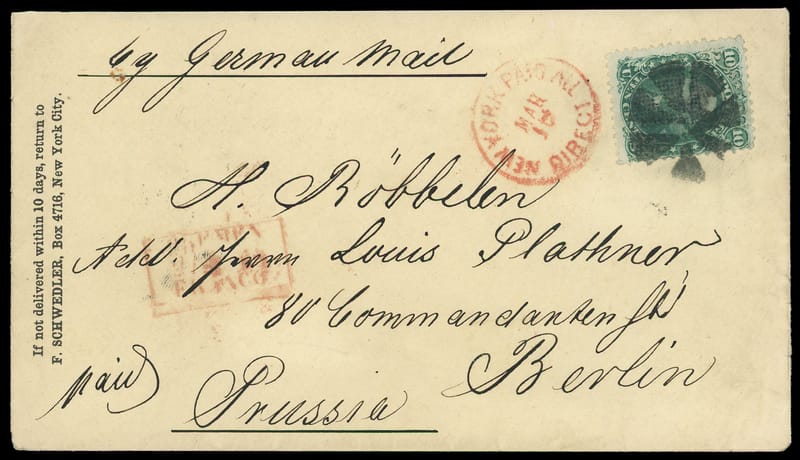 If not delivered within 10 days, return to
F. SCHWEDLER, Box 4716, New York City.
by German Mail
NEW YORK PAID ALL DIRECT
MAR
10
10
H. Röbbelen
Add. Herrn Louis Plathner
80 Commandanten St
Berlin
paid
Prussia
BREMEN
FRANCO